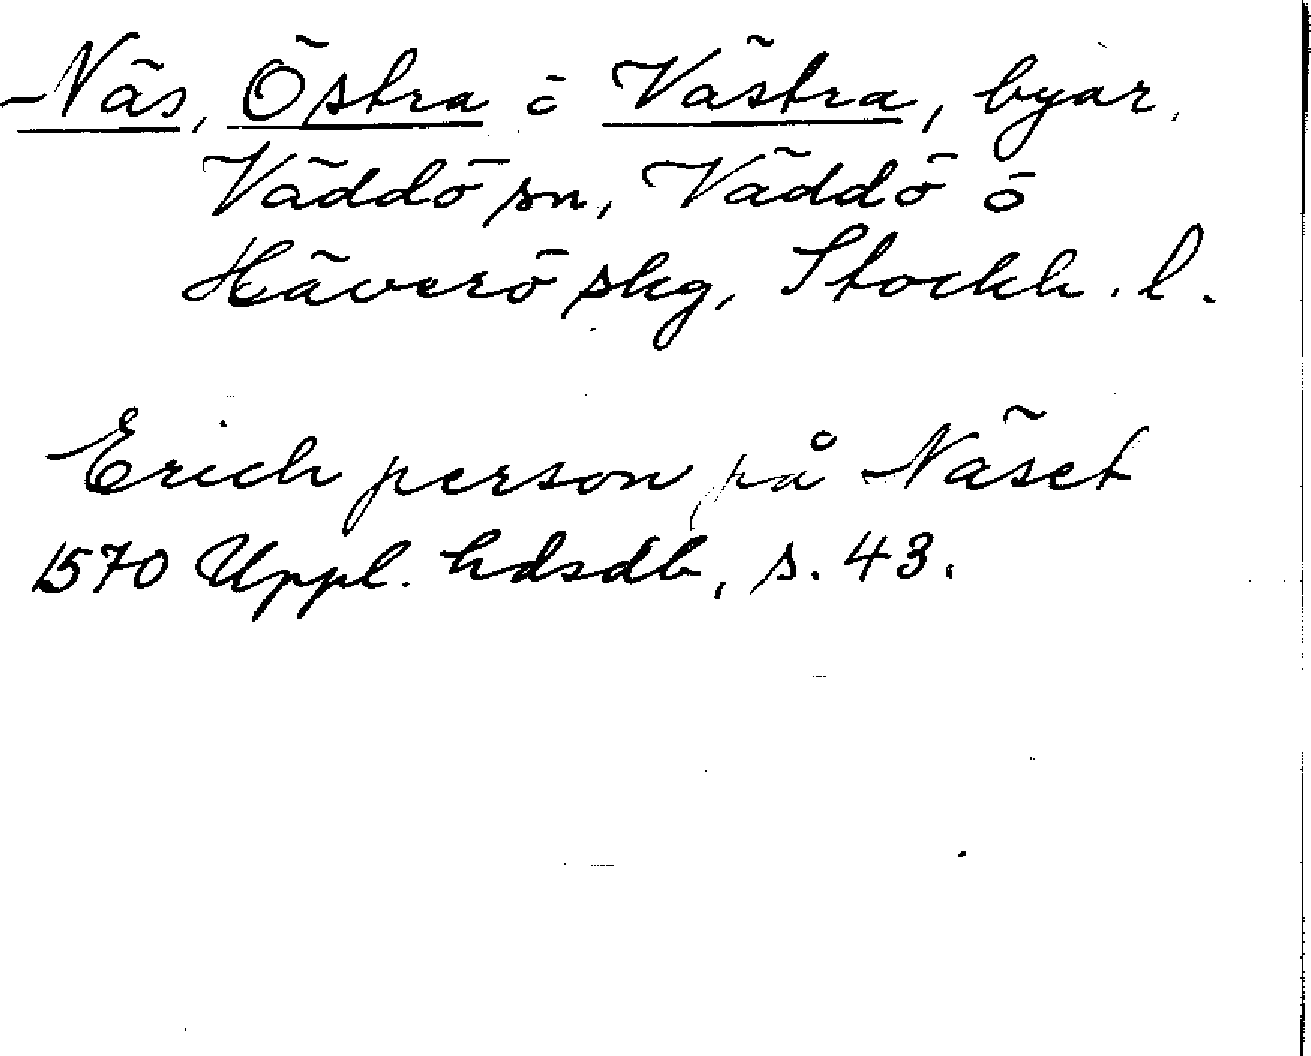 Näs, Östra o Västra, byar,
Väddö sn, Väddö o
Häverö skg, Stockh. l.
Erich person på Näset
1570 Uppl. hdsdb, s. 43.